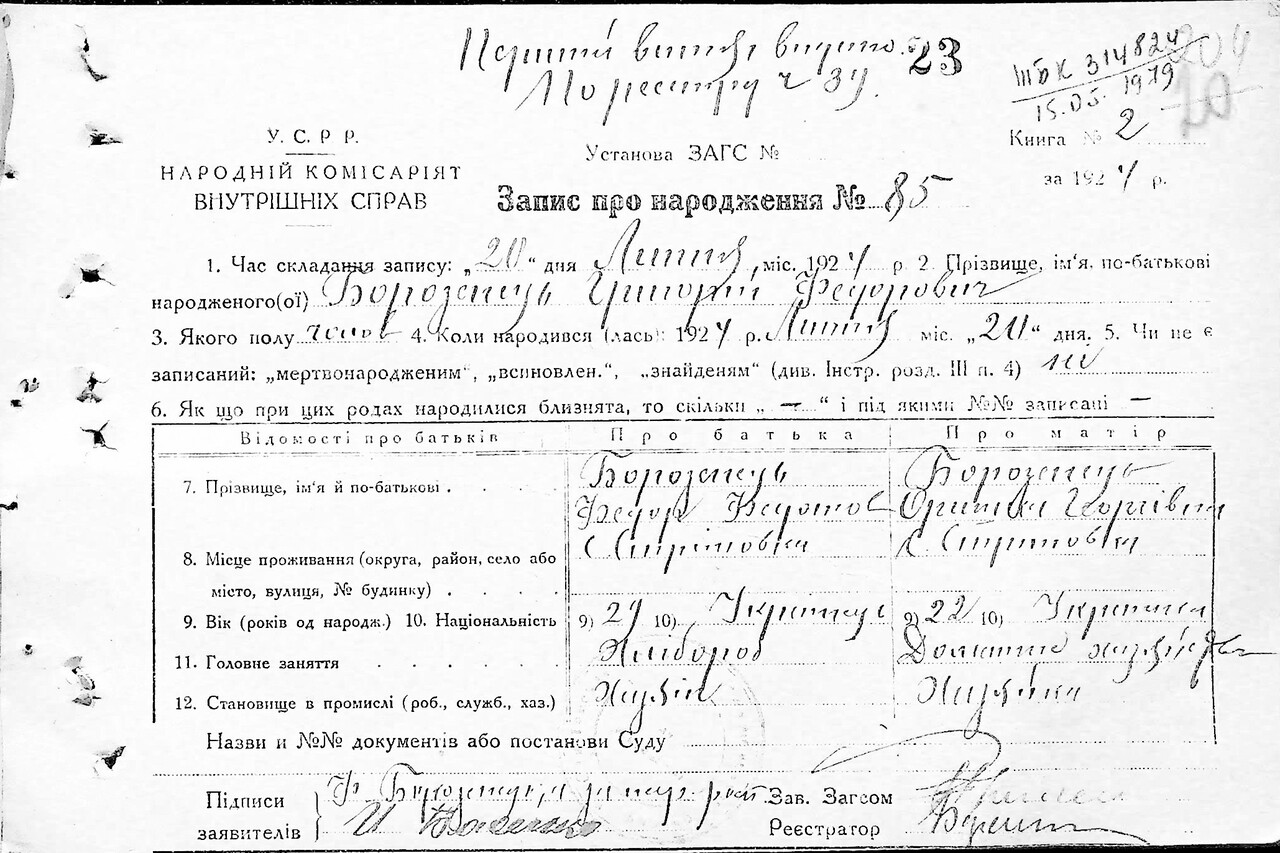 Перший витяг видано 23
По реєстру ч 39.
ШБК 314824
15.05.1979
Книга № 2
У. С. Р Р.
НАРОДНІЙ КОМІСАРІЯТ
ВНУТРІШНІХ СПРАВ
Установа ЗАГС №
за 1924 р.
Запис про народження № 85
1. Час складання запису: „20“ дня Лютня, міс. 1924 р 2. Прізвище, ім'я, по-батькові
народженого(ої) Григорій Федорович
3. Якого полу чолов 4. Коли народився (лась): 1924 р. Лютня міс. „20“ дня. 5. Чи не є
записаний: „мертвонародженим“, „всиновлен.“, „знайденям“ (див. Інстр. розд. III п. 4) ні
6. Як що при цих родах народилися близнята, то скільки „ — “ і під якими №№ записані —
Відомості про батьків Про батька Про матір
7. Прізвище, ім'я й по-батькові . Федор Георгіївна
8. Місце проживання (округа, район, село або
місто, вулиця, № будинку) . с с
9. Вік (років од народж.) 10. Національність 9) 29 10) Українець 9) 22 10) Українка
11. Головне заняття Хлібороб Домашня
12. Становище в промислі (роб., служб., хаз.) Хазяїн Хазяйка
Назви и №№ документів або постанови Суду
Підписи Ф. Зав. Загсом
заявителів И Реєстратор